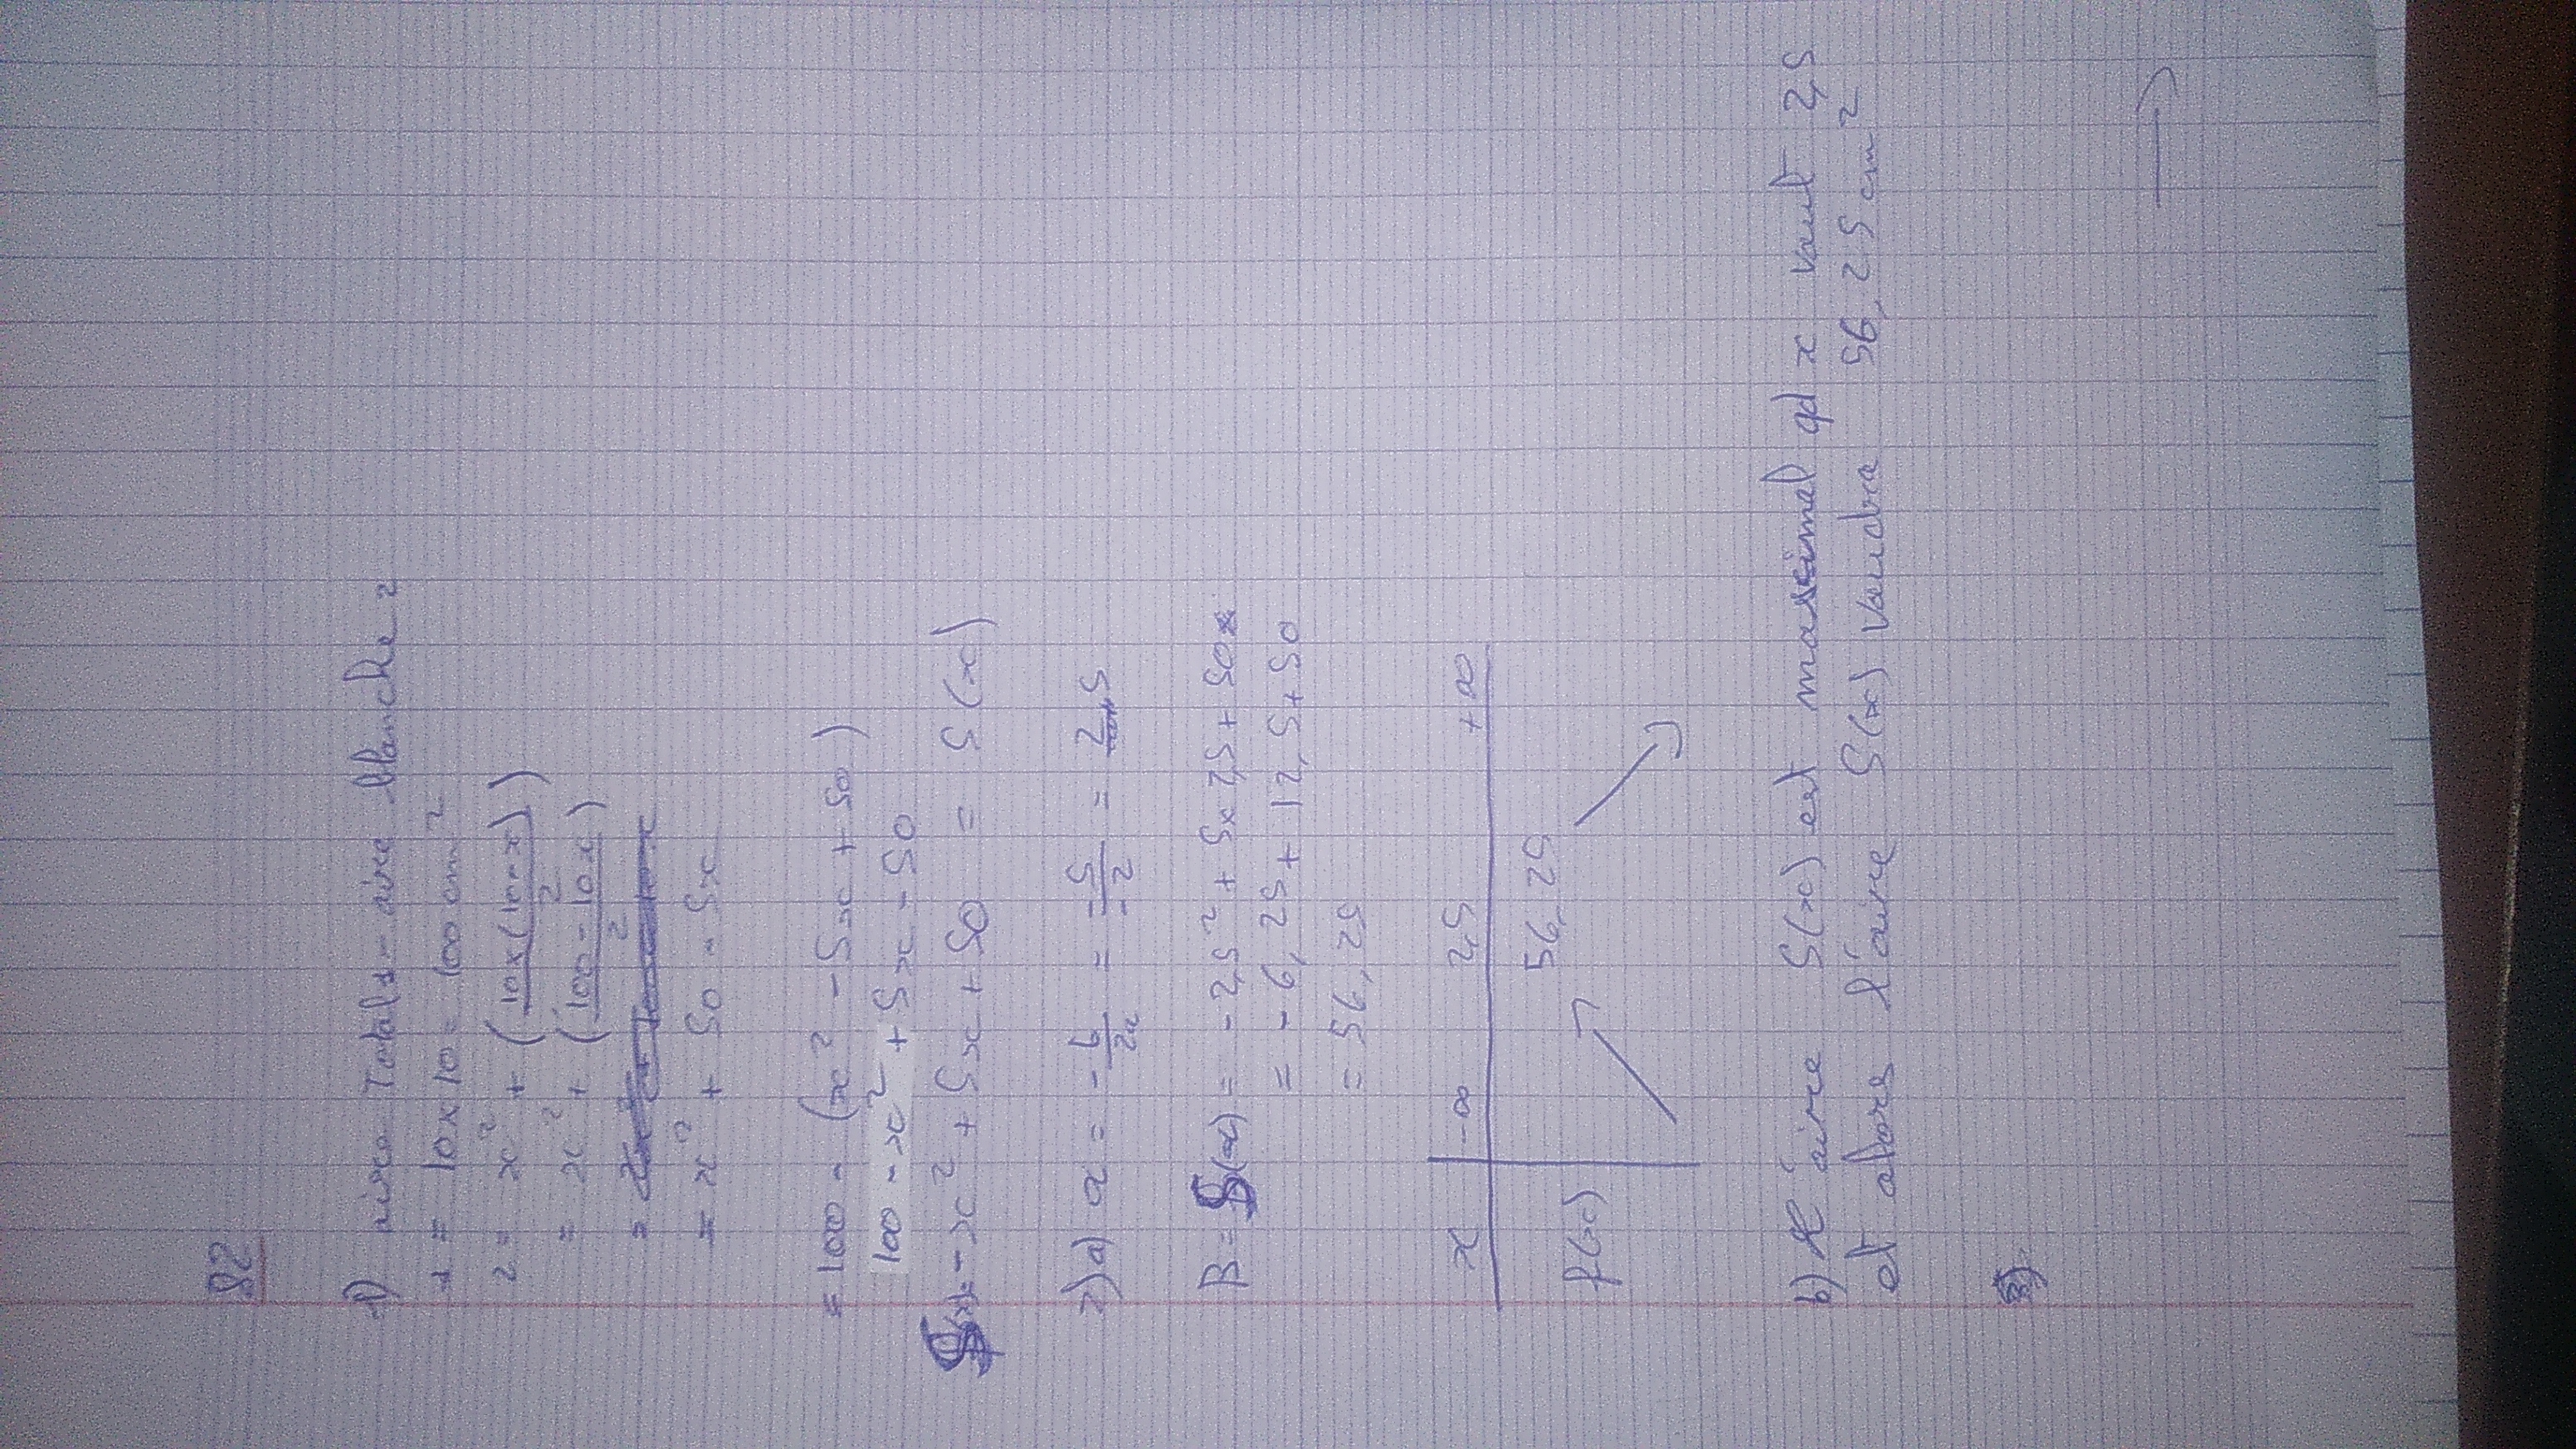 82
1) aire Total 1 - aire blanche 2
1 = 10 x 10 = 100 cm²
2 = x² + (10x(10-x)/2)
= x² + (100-10x/2)
=
= x² + 50 - 5x
= 100 - (x² - 5x + 50)
100 - x² + 5x - 50
S(x) = -x² + 5x + 50 = S(x)
2) a) α = -b/2a = -5/-2 = 2,5
B = S(x) = -2,5² + 5x2,5 + 50
= -6,25 + 12,5 + 50
= 56,25
x -∞ 2,5 +∞
56,25
f(x)
b) L'aire S(x) est maximal qd x vaut 2,5
et alors l'aire S(x) vaudra 56,25 cm²
3)